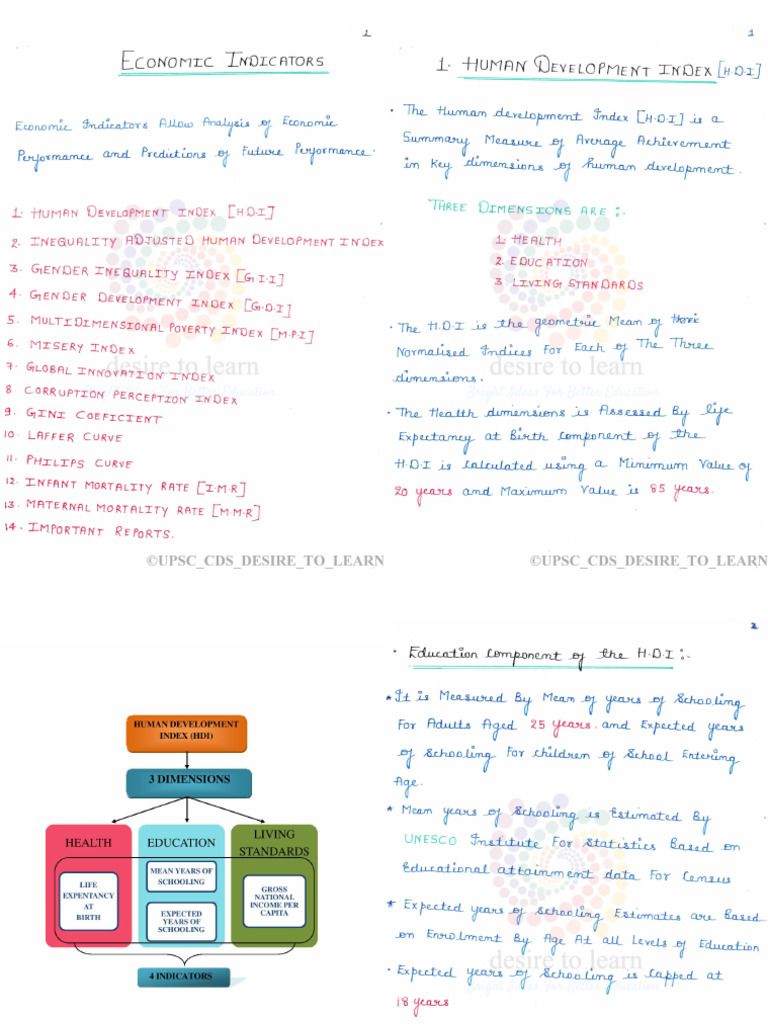 1
ECONOMIC INDICATORS
Economic Indicators Allow Analysis of Economic
Performance and Predictions of Future Performance.
1. HUMAN DEVELOPMENT INDEX [H.D.I]
2. INEQUALITY ADJUSTED HUMAN DEVELOPMENT INDEX
3. GENDER INEQUALITY INDEX [G.I.I]
4. GENDER DEVELOPMENT INDEX [G.D.I]
5. MULTIDIMENSIONAL POVERTY INDEX [M.P.I]
6. MISERY INDEX
7. GLOBAL INNOVATION INDEX
8. CORRUPTION PERCEPTION INDEX
9. GINI COEFICIENT
10. LAFFER CURVE
11. PHILIPS CURVE
12. INFANT MORTALITY RATE [I.M.R]
13. MATERNAL MORTALITY RATE [M.M.R]
14. IMPORTANT REPORTS.
desire to learn
Bright Ideas For Better Education
©UPSC_CDS_DESIRE_TO_LEARN
1
1. HUMAN DEVELOPMENT INDEX [H.D.I]
• The Human development Index [H.D.I] is a
Summary Measure of Average Achievement
in Key dimensions of human development.
THREE DIMENSIONS ARE :-
1. HEALTH
2. EDUCATION
3. LIVING STANDARDS
• The H.D.I is the geometric Mean of
Normalised Indices For Each of The Three
dimensions.
• The Health dimensions is Assessed By life
Expectancy at Birth component of the
H.D.I is calculated using a Minimum Value of
20 years and Maximum Value is 85 years.
desire to learn
Bright Ideas For Better Education
©UPSC_CDS_DESIRE_TO_LEARN
HUMAN DEVELOPMENT
INDEX (HDI)
3 DIMENSIONS
HEALTH
LIFE
EXPENTANCY
AT
BIRTH
EDUCATION
MEAN YEARS OF
SCHOOLING
EXPECTED
YEARS OF
SCHOOLING
LIVING
STANDARDS
GROSS
NATIONAL
INCOME PER
CAPITA
4 INDICATORS
2
• Education Component of the H.D.I :-
* It is Measured By Mean of years of Schooling
For Adults Aged 25 years. and Expected years
of Schooling For children of School Entering
Age.
* Mean years of Schooling is Estimated By
UNESCO Institute For Statistics Based on
Educational attainment data For Census
* Expected years of Schooling Estimates are Based
on Enrolment By Age At all Levels of Education
• Expected years of Schooling is Capped at
18 years
desire to learn
Bright Ideas For Better Education